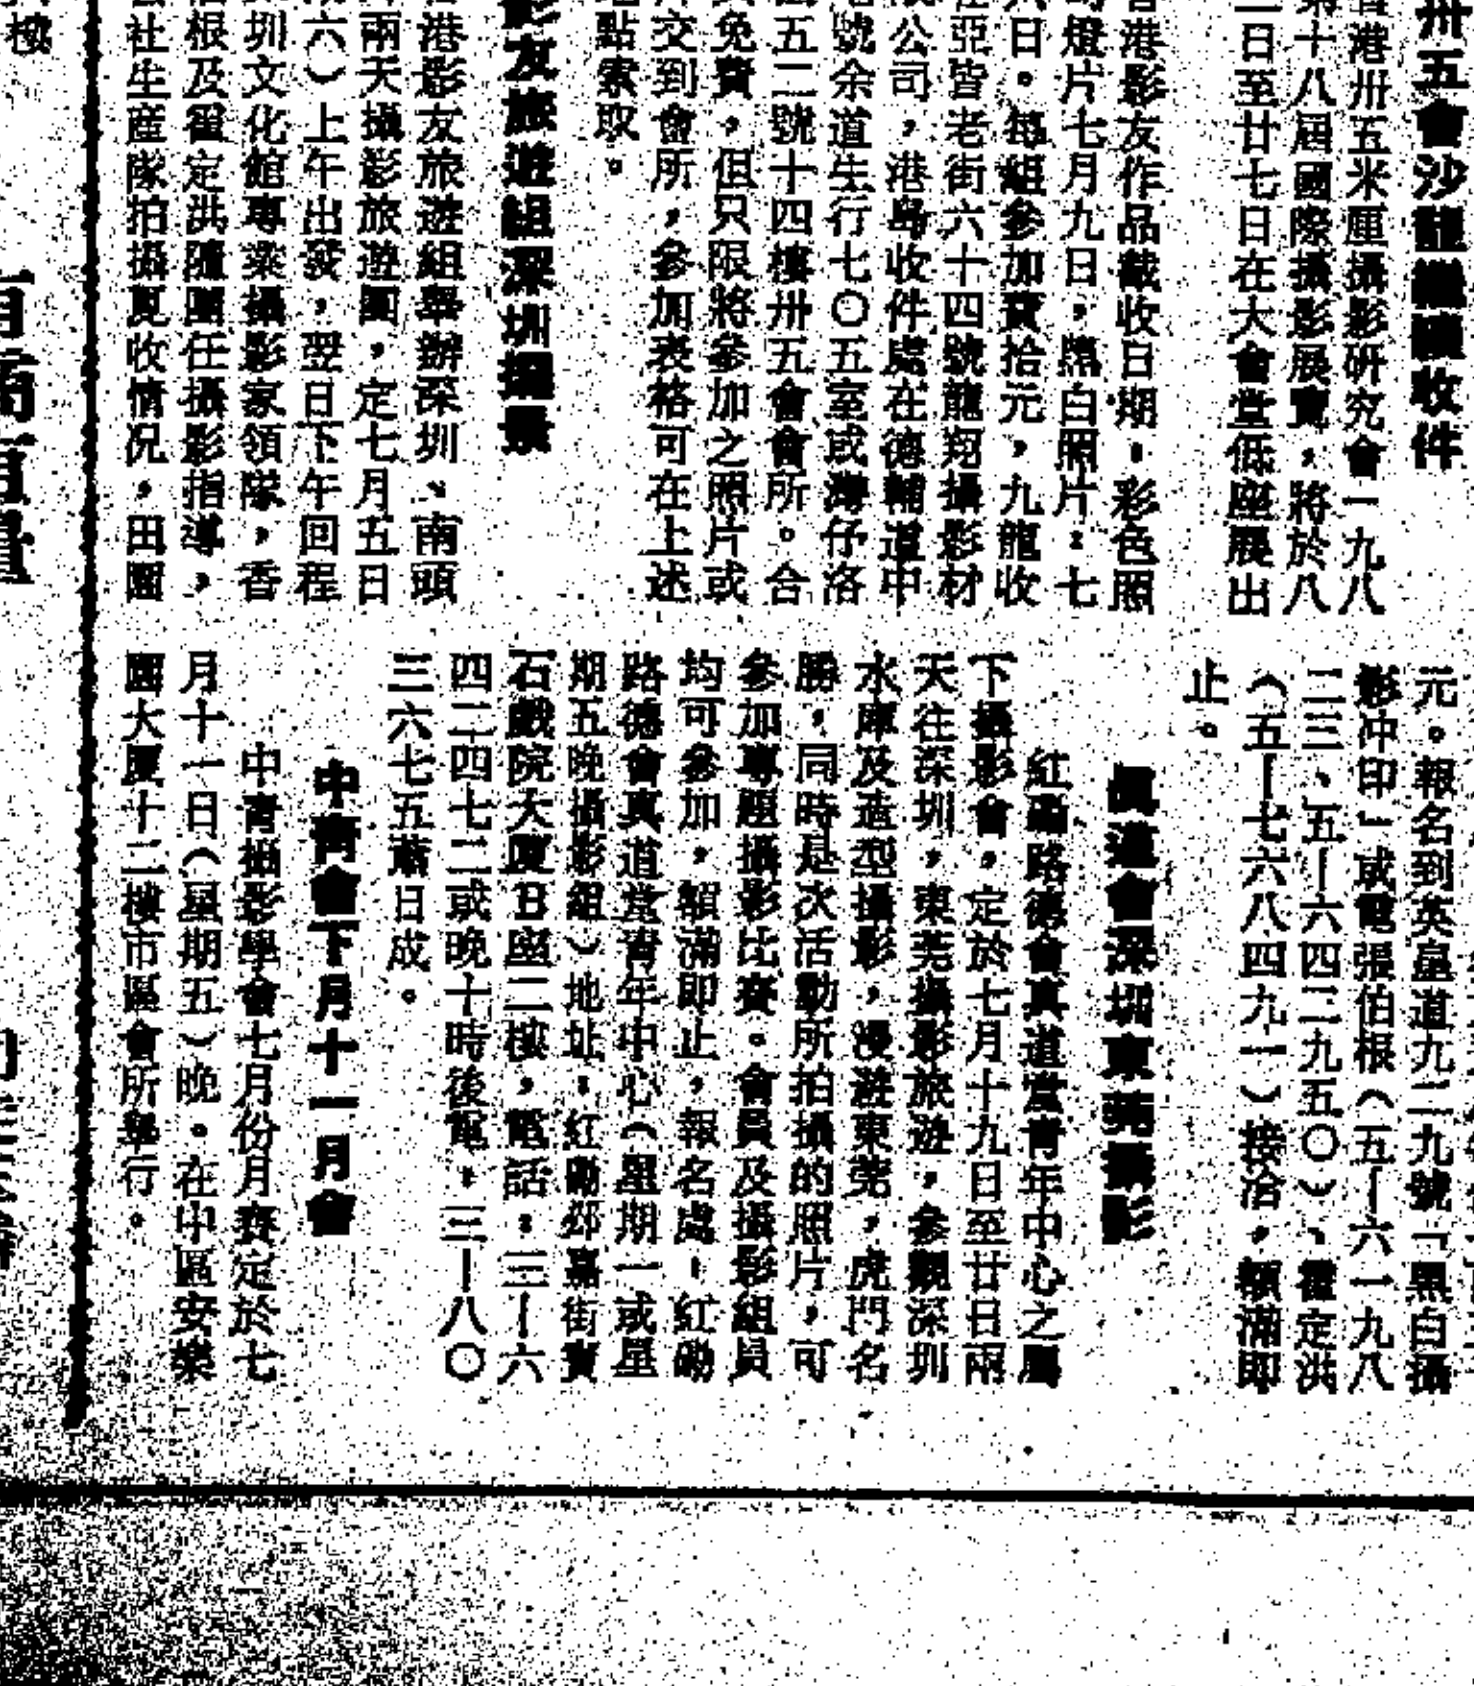 卅五會沙龍繼續收件
香港卅五米厘攝影研究會一九八
第十八屆國際攝影展覽，將於八
二日至廿七日在大會堂低座展出
香港影友作品截收日期，彩色照
燈片七月九日，黑白照片：七
八日。每組參加費拾元，九龍收
亞皆老街六十四號龍翔攝影材
公司，港島收件處在德輔道中
號余道生行七〇五室或灣仔洛
五二號十四樓卅五會會所。合
免費，但只限將參加之照片或
交到會所，參加表格可在上述
點索取。
影友旅遊組深圳攝景
香港影友旅遊組舉辦深圳、南頭
兩天攝影旅遊團，定七月五日
六）上午出發，翌日下午回程
圳文化館專業攝影家領隊，香
根及霍定洪隨團任攝影指導，
社生產隊拍攝夏收情况，田園
元。報名到英皇道九二九號「黑白攝
影冲印」或電張伯根（五—六一九八
二三、五—六四三九五〇）、霍定洪
（五—七六八四九一）接洽，額滿即
止。
真道會深圳東莞攝影
紅磡路德會真道堂青年中心之屬
下攝影會，定於七月十九日至廿日兩
天往深圳，東莞攝影旅遊，參觀深圳
水庫及造型攝影，漫遊東莞，虎門名
勝，同時是次活動所拍攝的照片，可
參加專題攝影比賽。會員及攝影組員
均可參加，額滿即止，報名處，紅磡
路德會真道堂青年中心（星期一或星
期五晚攝影組）地址：紅磡邠嘉街寶
石戲院大廈B座二樓，電話：三—六
四二四七二或晚十時後電，三—八〇
三六七五蕭日成。
中青會下月十一月會
中青攝影學會七月份月賽定於七
月十一日（星期五）晚。在中區安樂
園大廈十二樓市區會所舉行。